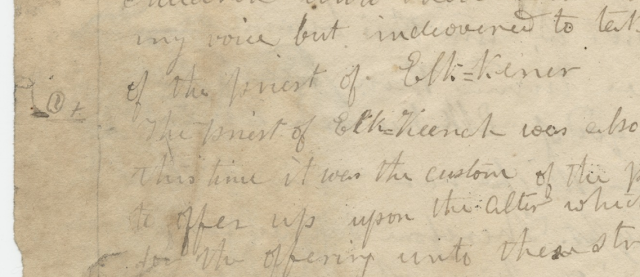 my voice but indeovered to tak
of the priest of Elk=Kener
The priest of Elk=Keenah was also
this time it was the custom of the p
to offer up upon the alter whic
for the offering unto these str